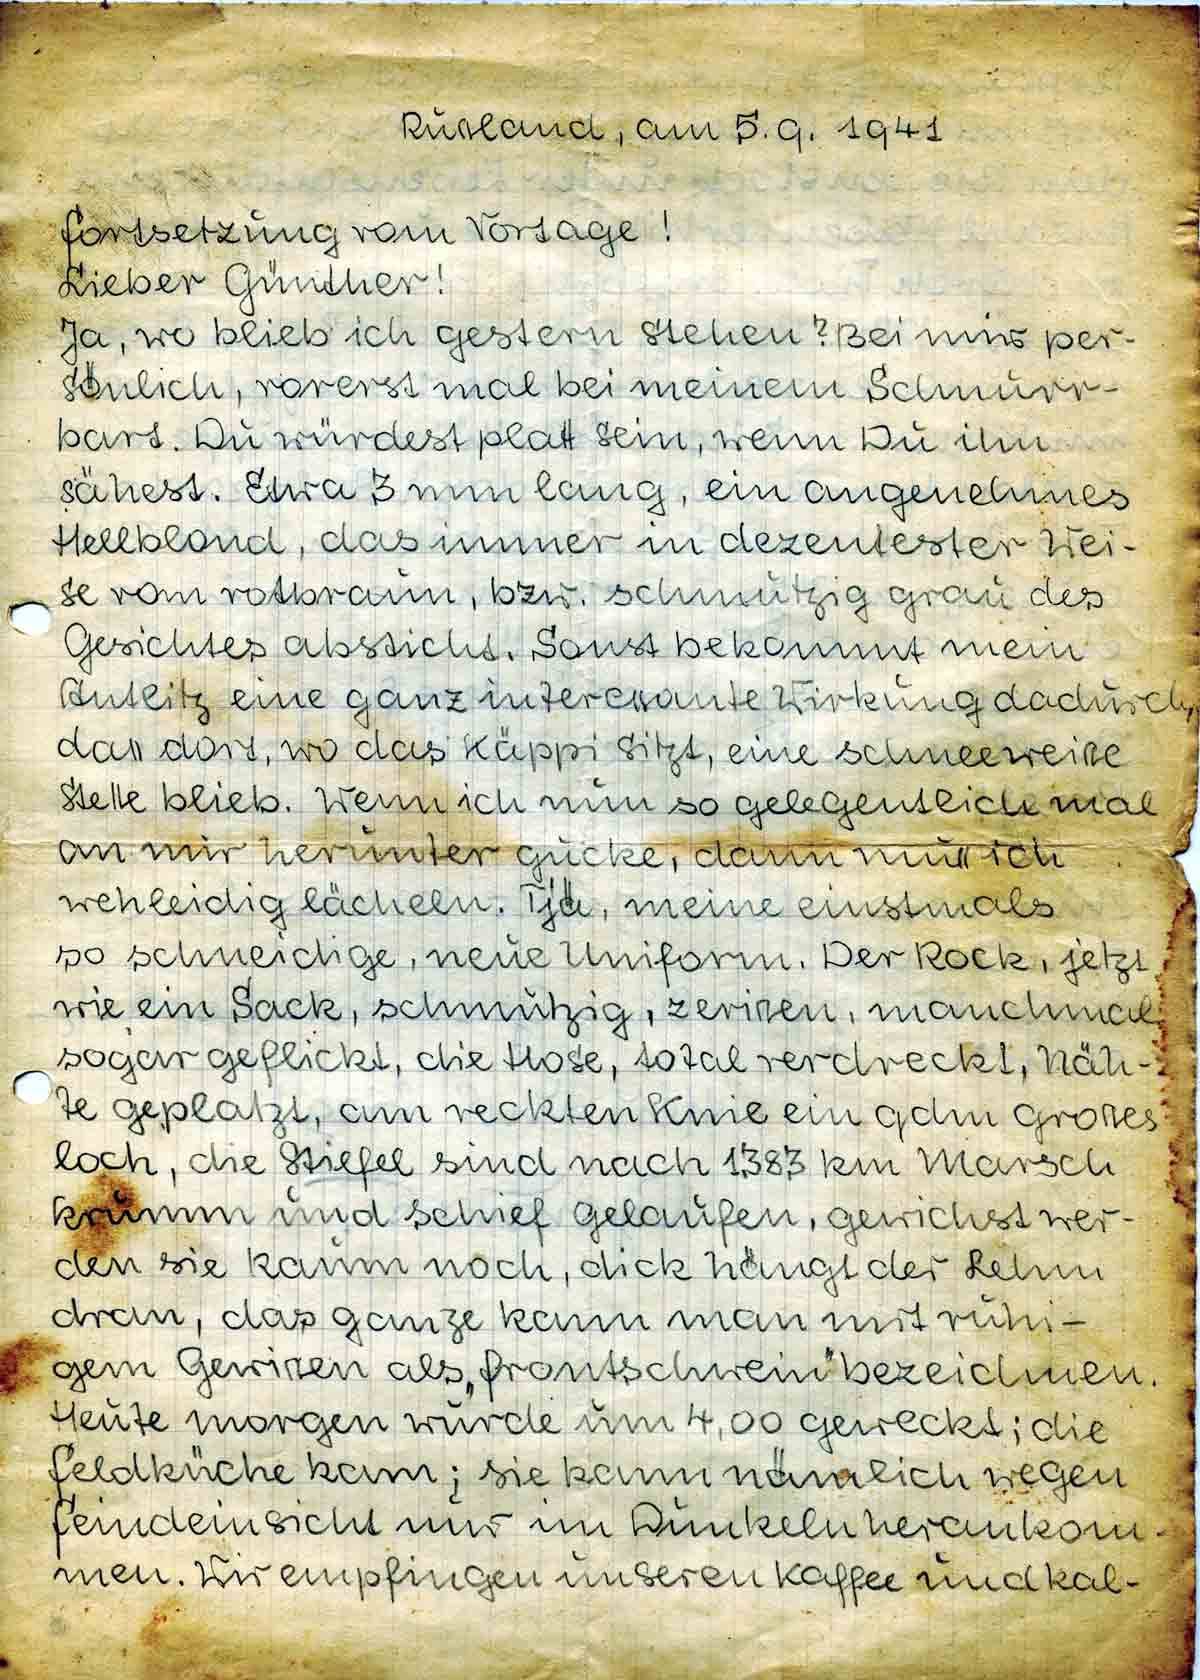 Rußland, am 5.9. 1941
Fortsetzung vom Vortage!
Lieber Günther!
Ja, wo blieb ich gestern stehen? Bei mir per-
sönlich, vorerst mal bei meinem Schnurr-
bart. Du würdest platt sein, wenn Du ihn
sähest. Etwa 3 mm lang, ein angenehmes
Hellblond, das immer in dezentester Wei-
se vom rotbraun, bzw. schmutzig grau des
Gesichtes absticht. Sonst bekommt mein
Antlitz eine ganz interessante Wirkung dadurch,
dass dort, wo das Käppi sitzt, eine schneeweiße
Stelle blieb. Wenn ich nun so gelegentlich mal
an mir herunter gucke, dann muss ich
wehleidig lächeln. Tja, meine einstmals
so schneidige, neue Uniform. Der Rock, jetzt
wie ein Sack, schmutzig, zerißen, manchmal
sogar geflickt, die Hose, total verdreckt, Näh-
te geplatzt, am reckten Knie ein qdm großes
Loch, die Stiefel sind nach 1383 km Marsch
krumm und schief gelaufen, gewichst wer-
den sie kaum noch, dick hängt der Lehm
dran, das ganze kann man mit ruhi-
gem Gewißen als „Frontschwein" bezeichnen.
Heute morgen wurde um 4,00 geweckt; die
Feldküche kam; sie kann nämlich wegen
Feindeinsicht nur im Dunkeln herankom-
men. Wir empfingen unseren Kaffee und kal-